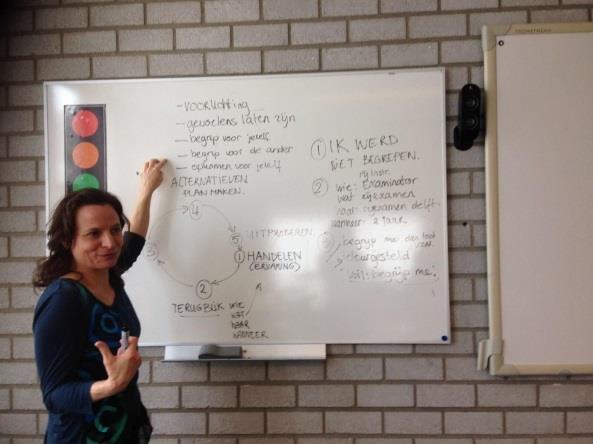 PROMETHEAN
- VOORLICHTING
- gevoelens laten zijn
- begrip voor jezelf
- begrip voor de ander
- opkomen voor jezelf
ALTERNATIEVEN
PLAN MAKEN.
4
5 UITPROBEREN.
1 HANDELEN
(ERVARING)
2
TERUGBLIK
WIE
WAT
WAAR
WANNEER
1 IK WERD
NIET BEGREPEN.
2 wie: Examinator
wat rijexamen
waar: rijexamen delft
wanneer: 2 jaar
3 begrijp me dan toch
teleurgesteld
begrijp me.